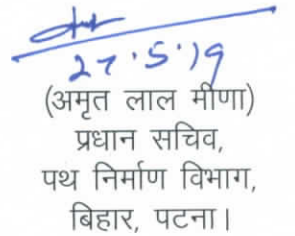 27.5.19
(अमृत लाल मीणा)
प्रधान सचिव,
पथ निर्माण विभाग,
बिहार, पटना।